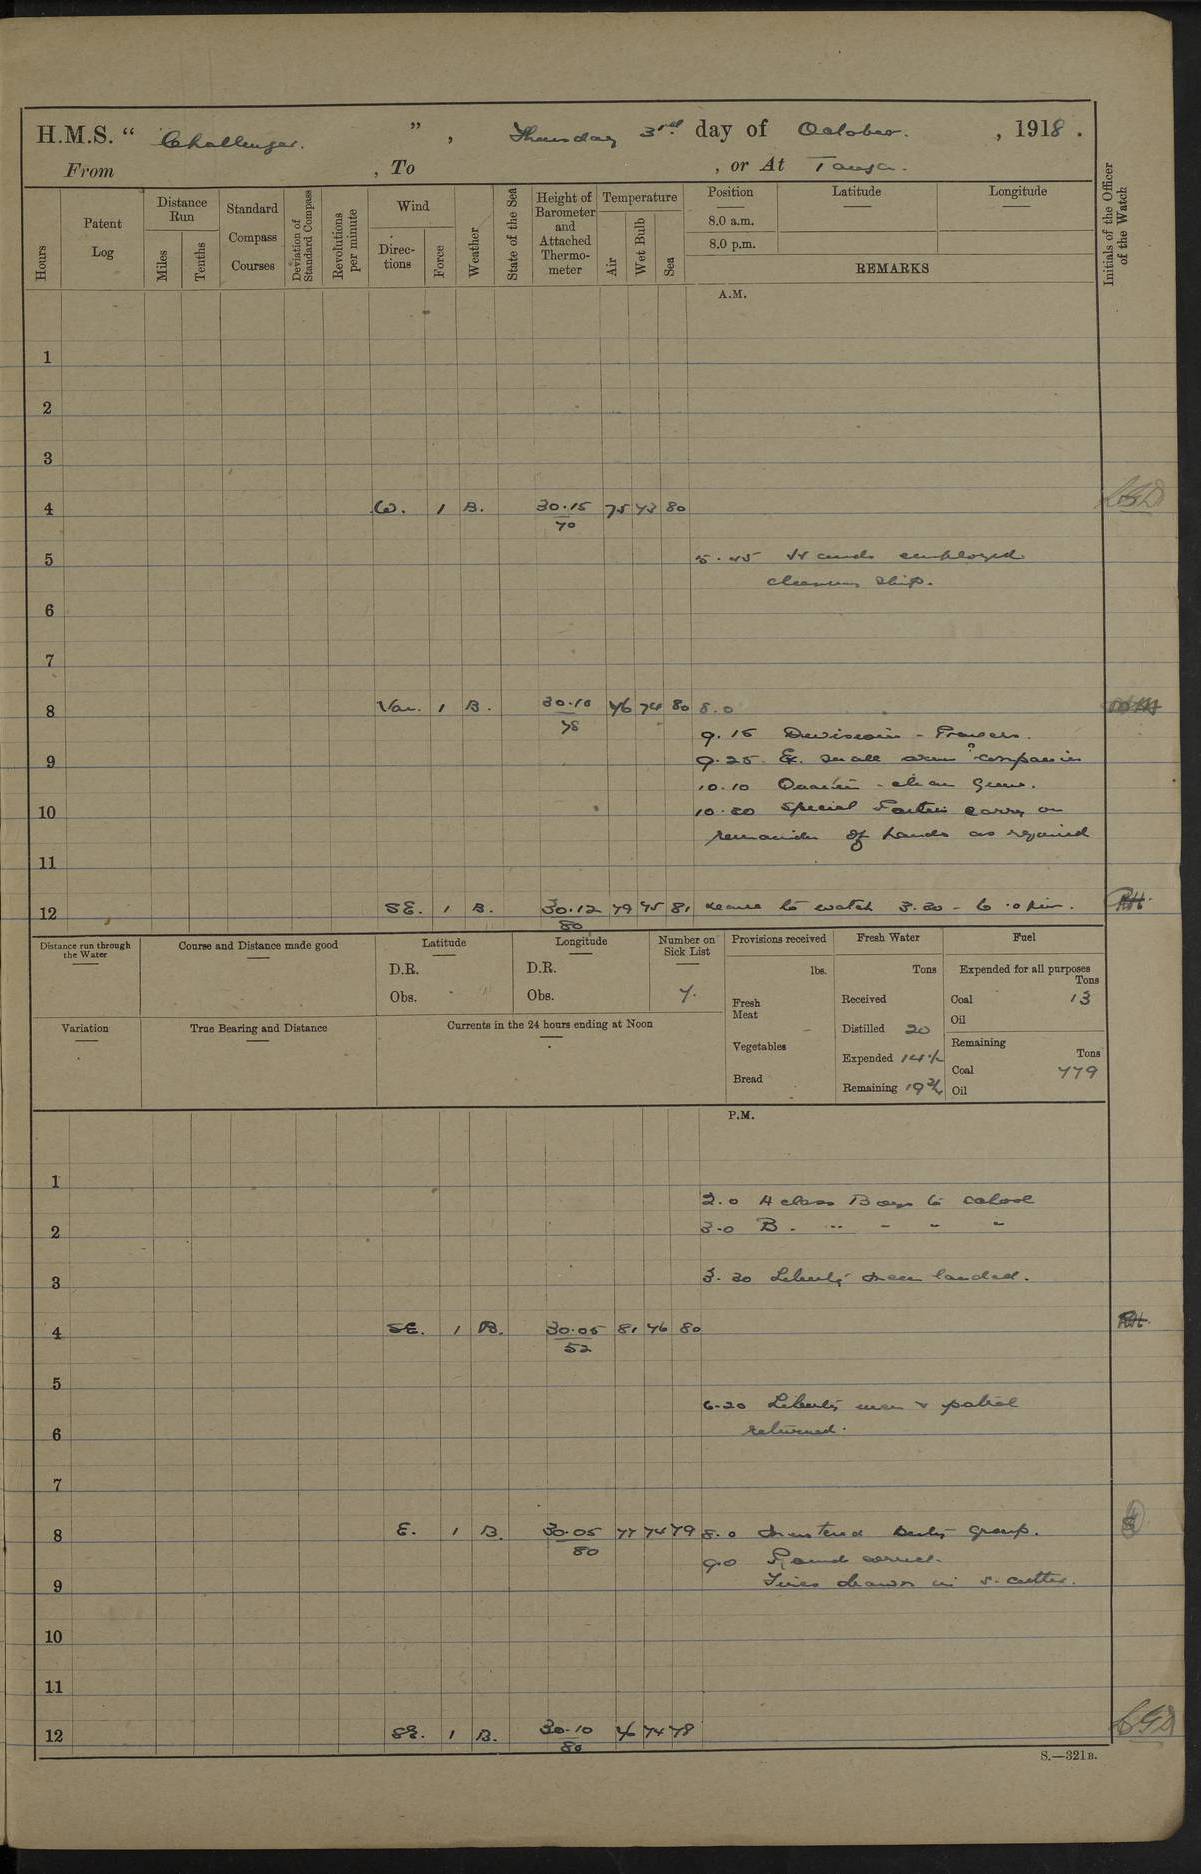 H.M.S. “ Challenger. ” , Thursday 3rd day of October. , 1918 .
From , To , or At Tanga.
Hours
Patent Log
Distance Run
Miles
Tenths
Standard Compass Courses
Deviation of Standard Compass
Revolutions per minute
Wind
Direc-tions
Force
Weather
State of the Sea
Height of Barometer and Attached Thermo-meter
Temperature
Air
Wet Bulb
Sea
Position
8.0 a.m.
8.0 p.m.
Latitude
Longitude
REMARKS
Initials of the Officer of the Watch
A.M.
1
2
3
4 W. 1 B. 30.15 75 73 80
70
5 5.45 Hands employed
cleaning ship.
6
7
8 Var. 1 B. 30.10 76 74 80 8.0
78
9.15 Divisions - Prayers.
9 9.25 Ex. small arm companies
10.10 Quarters - clean Guns.
10 10.20 Special Parties carry on
remainder of hands as required
11
12 SE. 1 B. 30.12 79 75 81 Leave to watch 3.30 - 6.0 pm.
80
Distance run through the Water
Course and Distance made good
Latitude
D.R.
Obs.
Longitude
D.R.
Obs.
Number on Sick List
7.
Provisions received
lbs.
Fresh Meat
Vegetables
Bread
Fresh Water
Tons
Received
Distilled 20
Expended 14½
Remaining
Fuel
Expended for all purposes
Tons
Coal 13
Oil
Remaining
Tons
Coal 779
Oil
Variation
True Bearing and Distance
Currents in the 24 hours ending at Noon
P.M.
1
2.0 A class Boys to school
2 3.0 B. " " " "
3 3.30 Liberty men landed.
4 SE. 1 B. 30.05 81 76 80
52
5
6.20 Liberty men & patrol
6 returned.
7
8 E. 1 B. 30.05 77 74 79 8.0 Mustered Duty group.
80
9.0 Rounds correct.
9 Fires drawn in s. cutter.
10
11
12 SE. 1 B. 30.10 76 74 78
80
S.—321B.